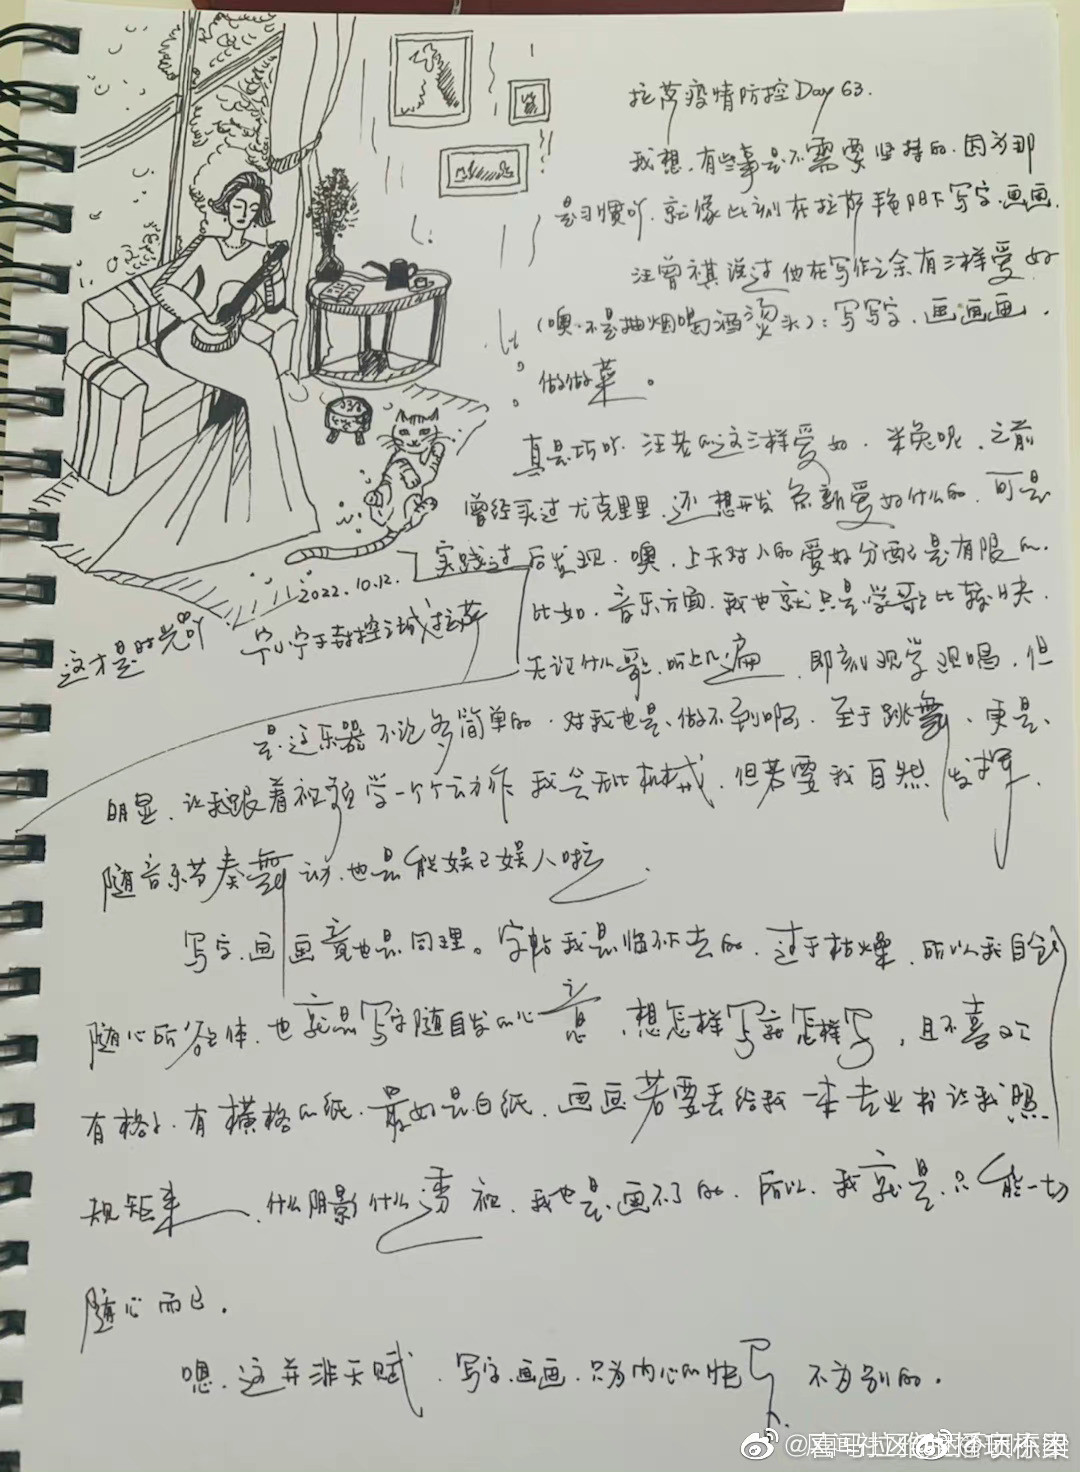 拉萨疫情防控Day 63.
我想,有些事是不需要坚持的.因为那
是习惯吖.就像此刻在拉萨艳阳下写字.画画.
汪曾祺说过他在写作之余有三样爱好
(噢.不是抽烟喝酒烫头):写写字、画画画,
做做菜。
真是巧吖.汪老的这三样爱好.米兔呢.之前
曾经买过尤克里里.还想开发点新爱好什么的.可是
实践过后发现.噢,上天对人的爱好分配是有限的.
比如.音乐方面.我也就只是学歌比较快.
无论什么歌.听上几遍.即刻现学现唱.但
是.这乐器不论多简单的.对我也是.做不到啊.至于跳舞、更是、
明显.让我跟着视频学一个个动作我会无比机械.但若要我自然发挥.
随音乐节奏舞动.也是能娱己娱人啦.
写字.画画竟也是同理。字帖我是临不下去的.过于枯燥.所以我自创
随心所欲体.也就是写字随自发的心意,想怎样写就怎样写,且不喜欢
有格子.有横格的纸.最好是白纸.画画若要丢给我一本专业书让我照
规矩来、什么阴影什么透视.我也是.画不了的.所以.我就是.只能一切
随心而已.
嗯.这并非天赋.写字.画画.只为内心的快乐.不为别的.
2022.10.12.
宁小宁于封控之城拉萨
这才是时光吖